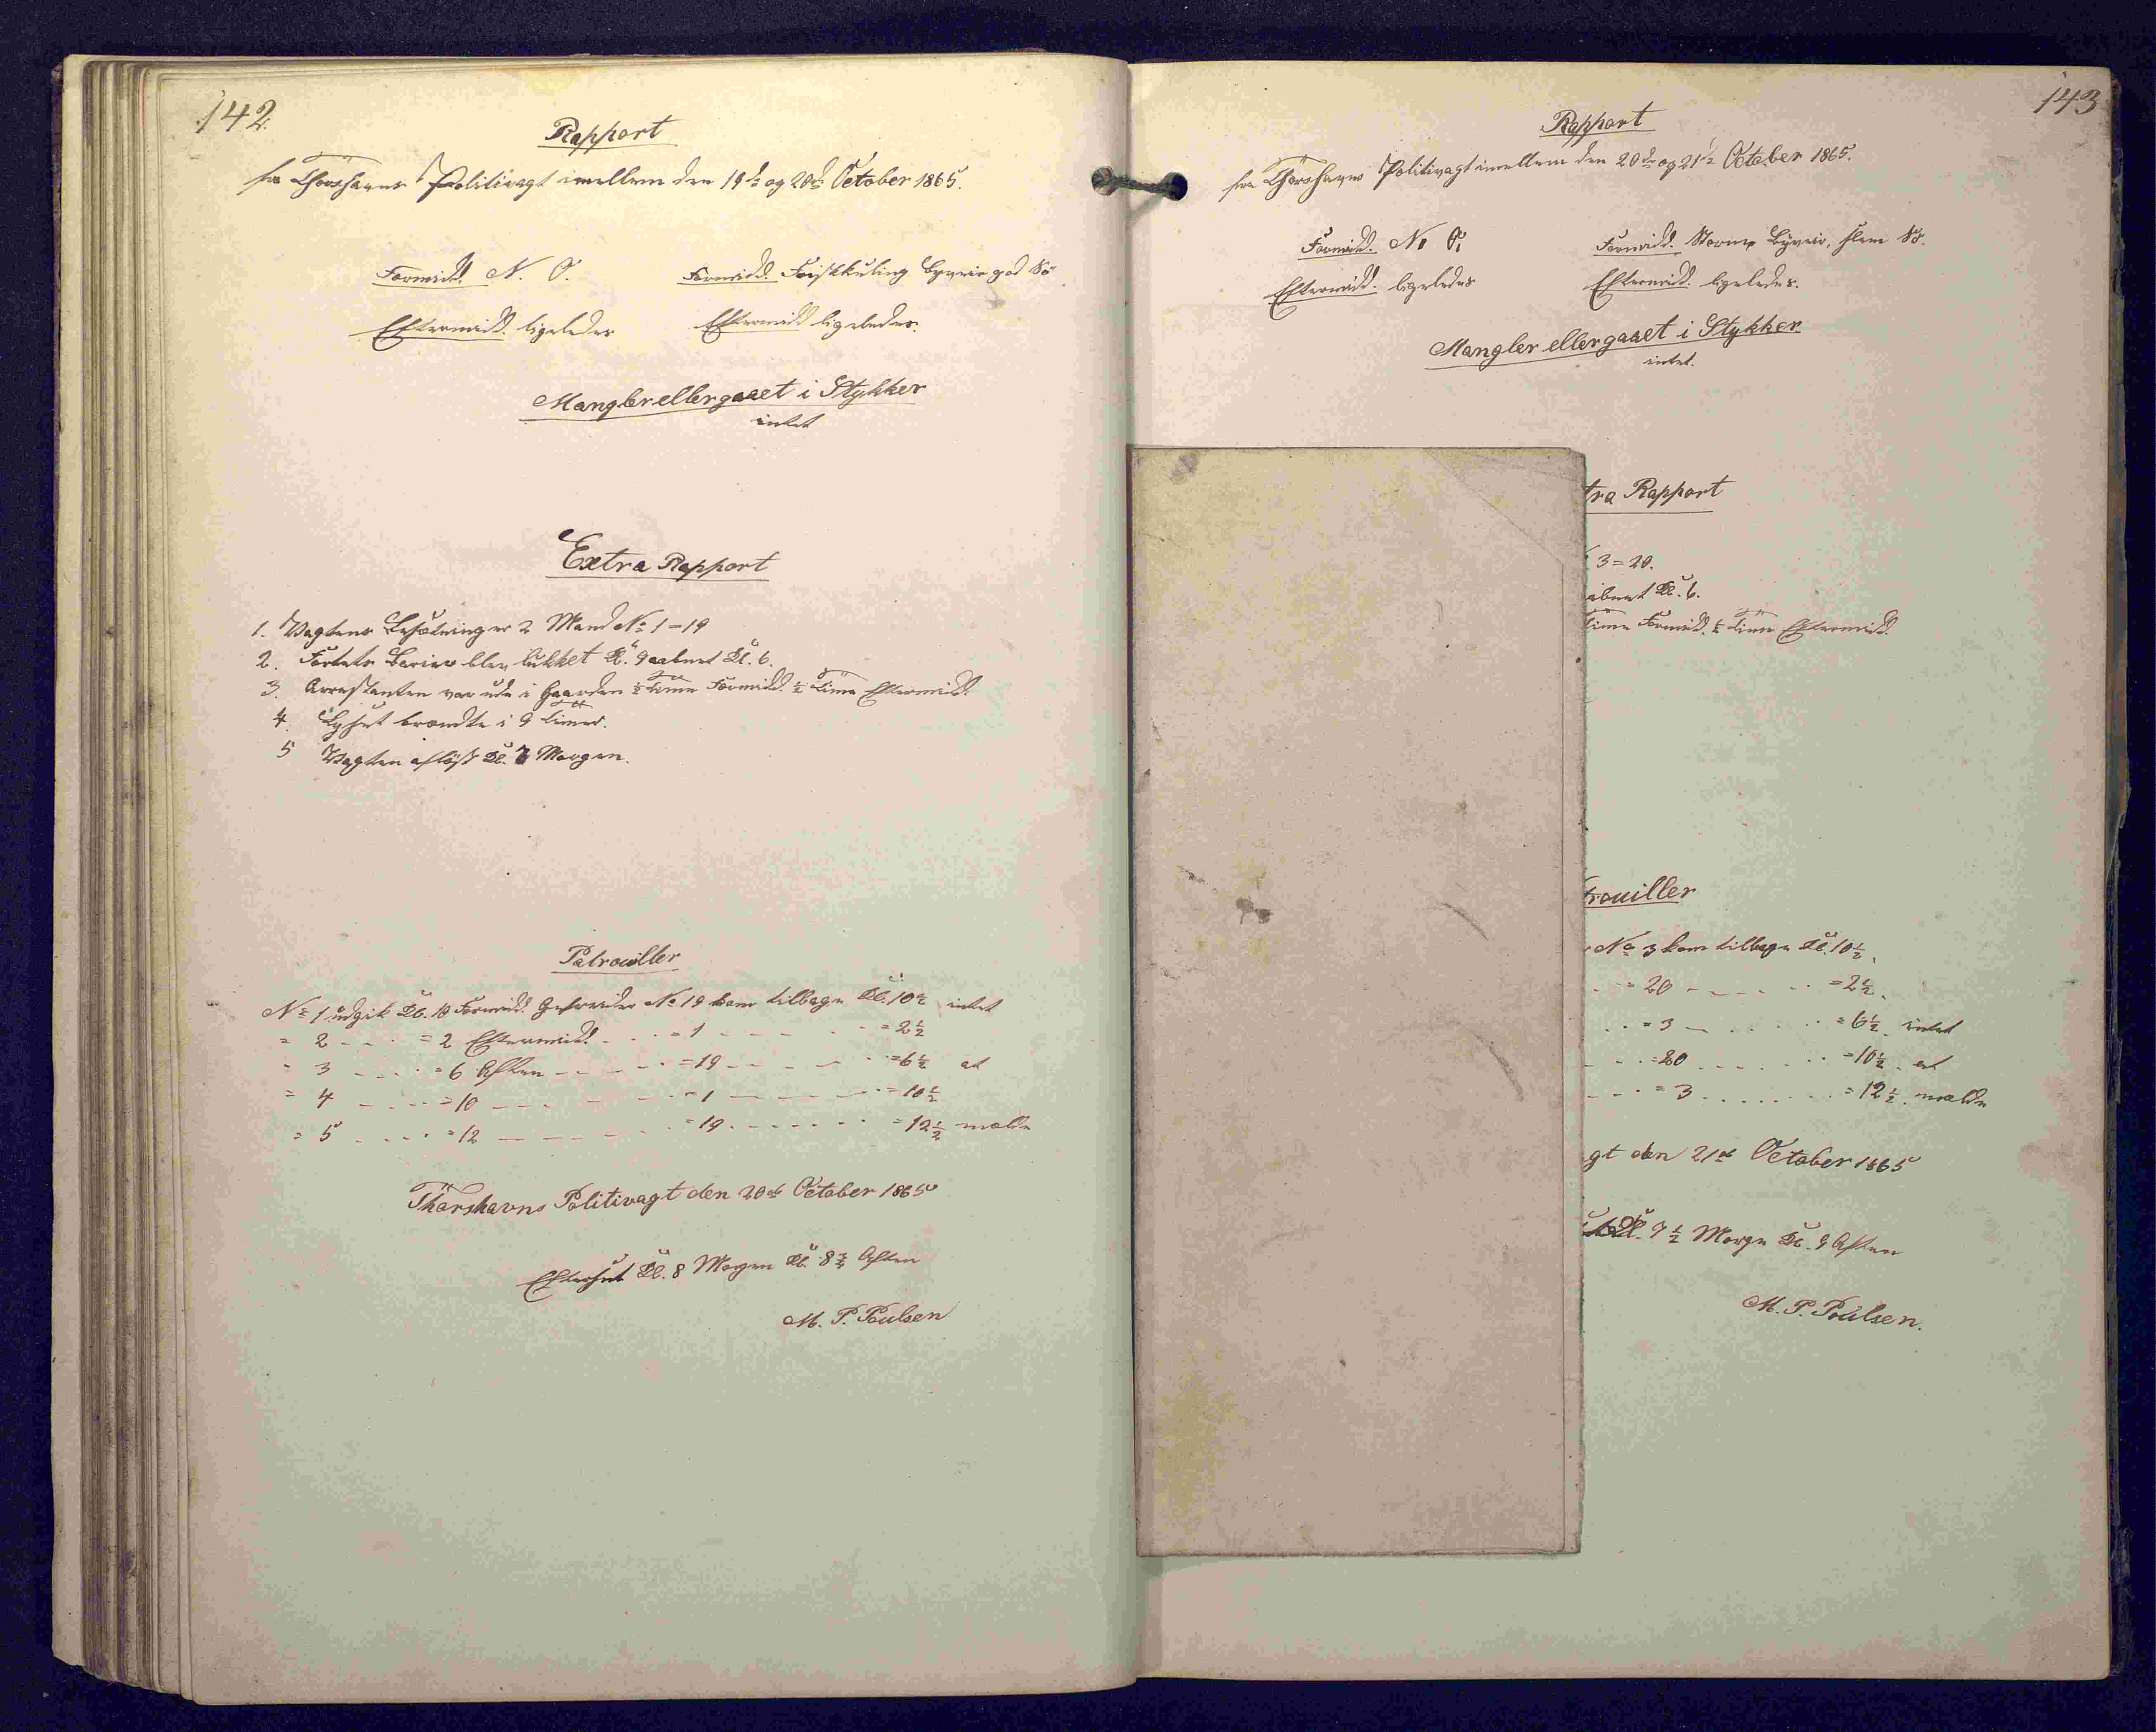 142
Rapport
fra Thorshavns Politivagt imellem den 19de og 20de October 1865.
Formidd. N. O. Formidd. Friskkuling Byveir god Sö
Eftermidd. ligeledes Eftermidd ligeledes.
Mangler eller gaaet i Stykker
intet
Extra Rapport
1. Vagtens Besætning er 2 Mand No 1-19
2. Fortets Bariere blev lukket Kl. 9 aabnet Kl. 6.
3. Arrestanten var ude i Gaarden ½ Time Formidd. ½ Time Eftermidd.
4. Lyset brændte i 9 Timer.
5 Vagten aflöst Kl. 7 Morgen.
Patrouiller
No 1 udgik Kl. 10 Formidd. Gefreider No 19 kom tilbage Kl. 10½ intet
= 2 - - - = 2 Eftermidd. - - - = 1 - - - - - = 2½
= 3 - - - = 6 Aften - - - - = 19 - - - - - = 6½ at
= 4 - - - = 10 - - - - - - = 1 - - - - - = 10½
= 5 - - - = 12 - - - - - - = 19 - - - - - = 12½ melde
Thorshavns Politivagt den 20de October 1865
Efterset Kl. 8 Morgen Kl. 8¾ Aften
M. P. Poulsen
143
Rapport
fra Thorshavns Politivagt imellem den 20de og 21de October 1865.
Formidd. N. O. Formidd. Storm Byveir, slem Sö.
Eftermidd. ligeledes Eftermidd. ligeledes.
Mangler eller gaaet i Stykker
intet.
tra Rapport
3=20.
abnet Kl. 6.
Time Formidd. ½ Time Eftermidd.
trouiller
No 3 kom tilbage Kl. 10½.
= 20 - - - - - = 2½.
= 3 - - - - - = 6½ intet
= 20 - - - - - = 10½. at
= 3 - - - - - = 12½. melde
gt den 21de October 1865
Kl. 7½ Morgen Kl. 9 Aften
M. P. Poulsen.